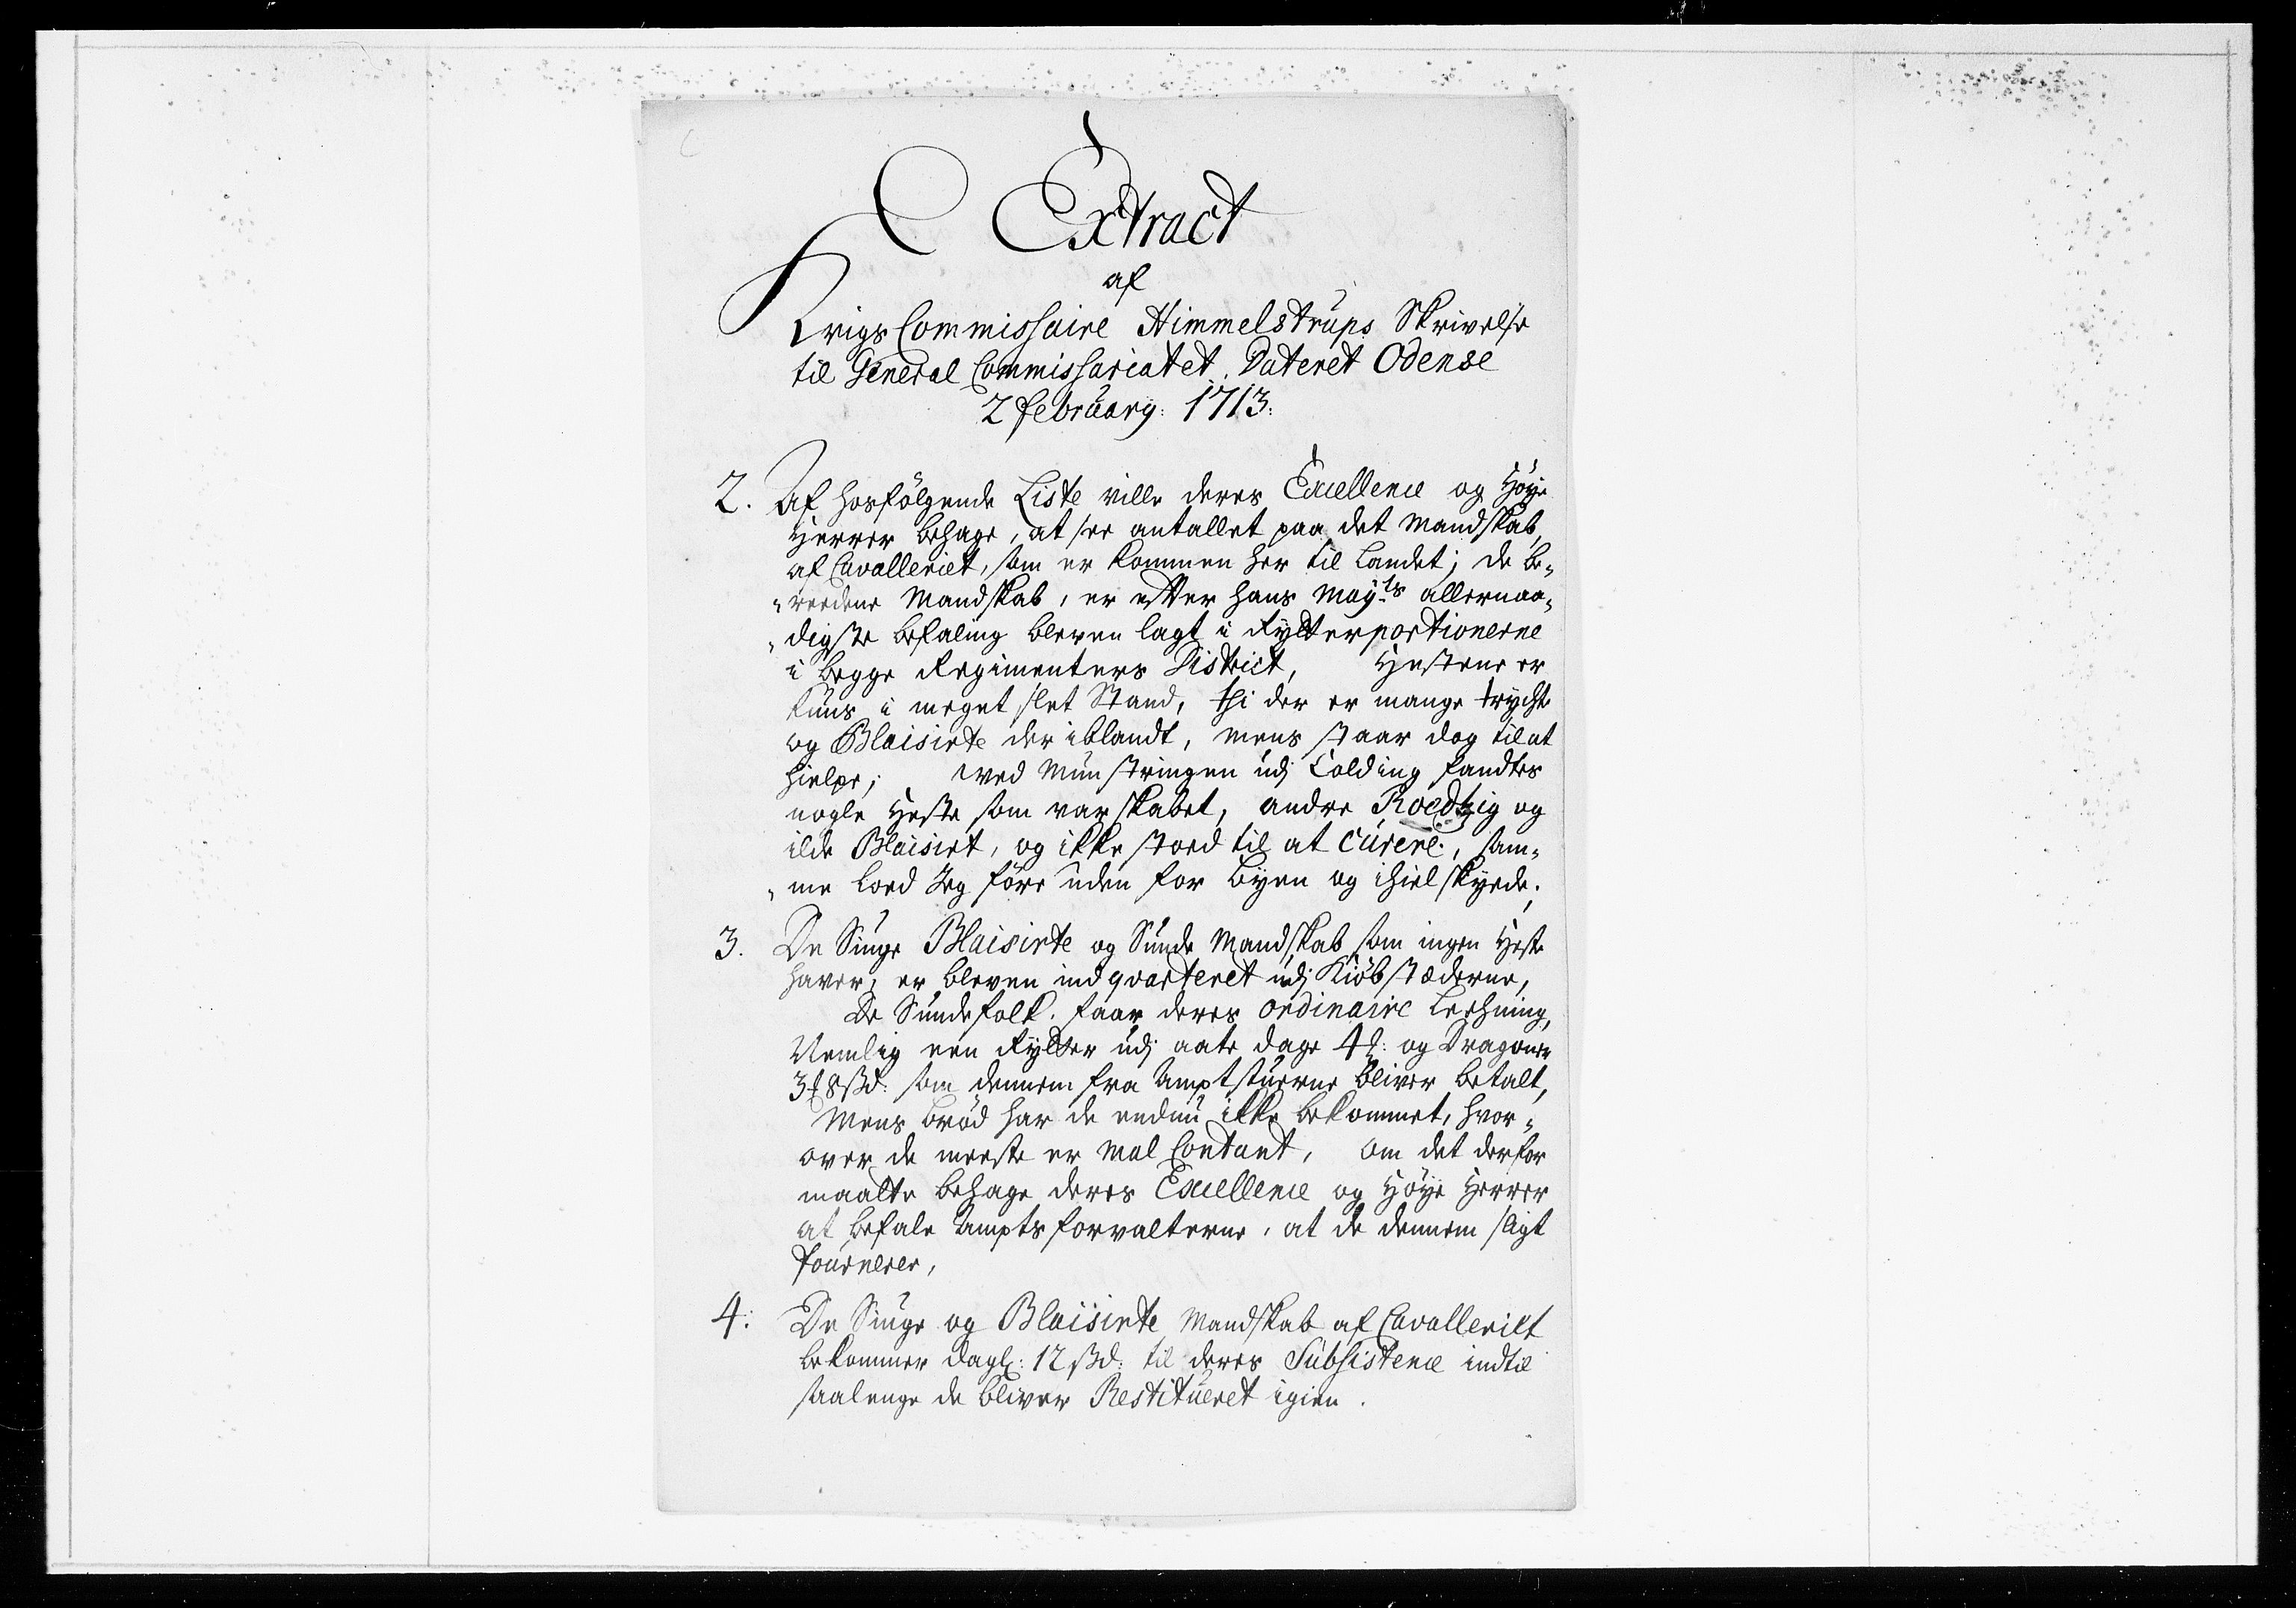 Extract
af
Krigs Commissaire Himmelstrups Skrivelse
til General Commissariatet. Dateret Odense
2 februarij: 1713:
2. Af hosfølgende Liste ville deres Excellence og Høye
Herrer behage, at see antallet paa det Mandskab,
af Cavalleriet, som er kommen her til Landet; de be-
-reedene Mandskab, er efter hans Mayts allernaa-
-digste befaling bleven lagt i Rytterportionerne
i begge Regimenters District, Hestene er
kuns i meget slet Stand, thi der er mange trycht
og Blaisirte der iblandt, mens staar dog til at
hielpe; wed Munstringen udj Colding fandtes
nogle Heste som var skabet, andre Roedtzig og
ilde Blaisirt, og ikke stoed til at Curere, sam-
-me loed Jeg føre uden for Byen og ihielskyede.
3. De Siuge Blaisirte og Sunde Mandskab som ingen Heste
haver, er bleven indqvarteret udj Kiøbstæderne,
De Sunde folk. faar deres ordinaire Leehning,
Nemlig een Rytter udj aate dage 4 : og Dragoner
3 8 ßd: som dennem fra Amptstuerne bliver betalt,
Mens brød har de endnu ikke bekommet, hvor-
over de meeste er Mal Contant, om det derfor
maatte behage deres Excellence og Høye Herrer
at befale Amptsforvalterne, at de dennem sligt
fournerer,
4: De Siuge og Blaisirte Mandskab af Cavalleriet
bekommer dagl: 12 ßd: til deres Subsistence indtil
saalenge de bliver Restitueret igien.